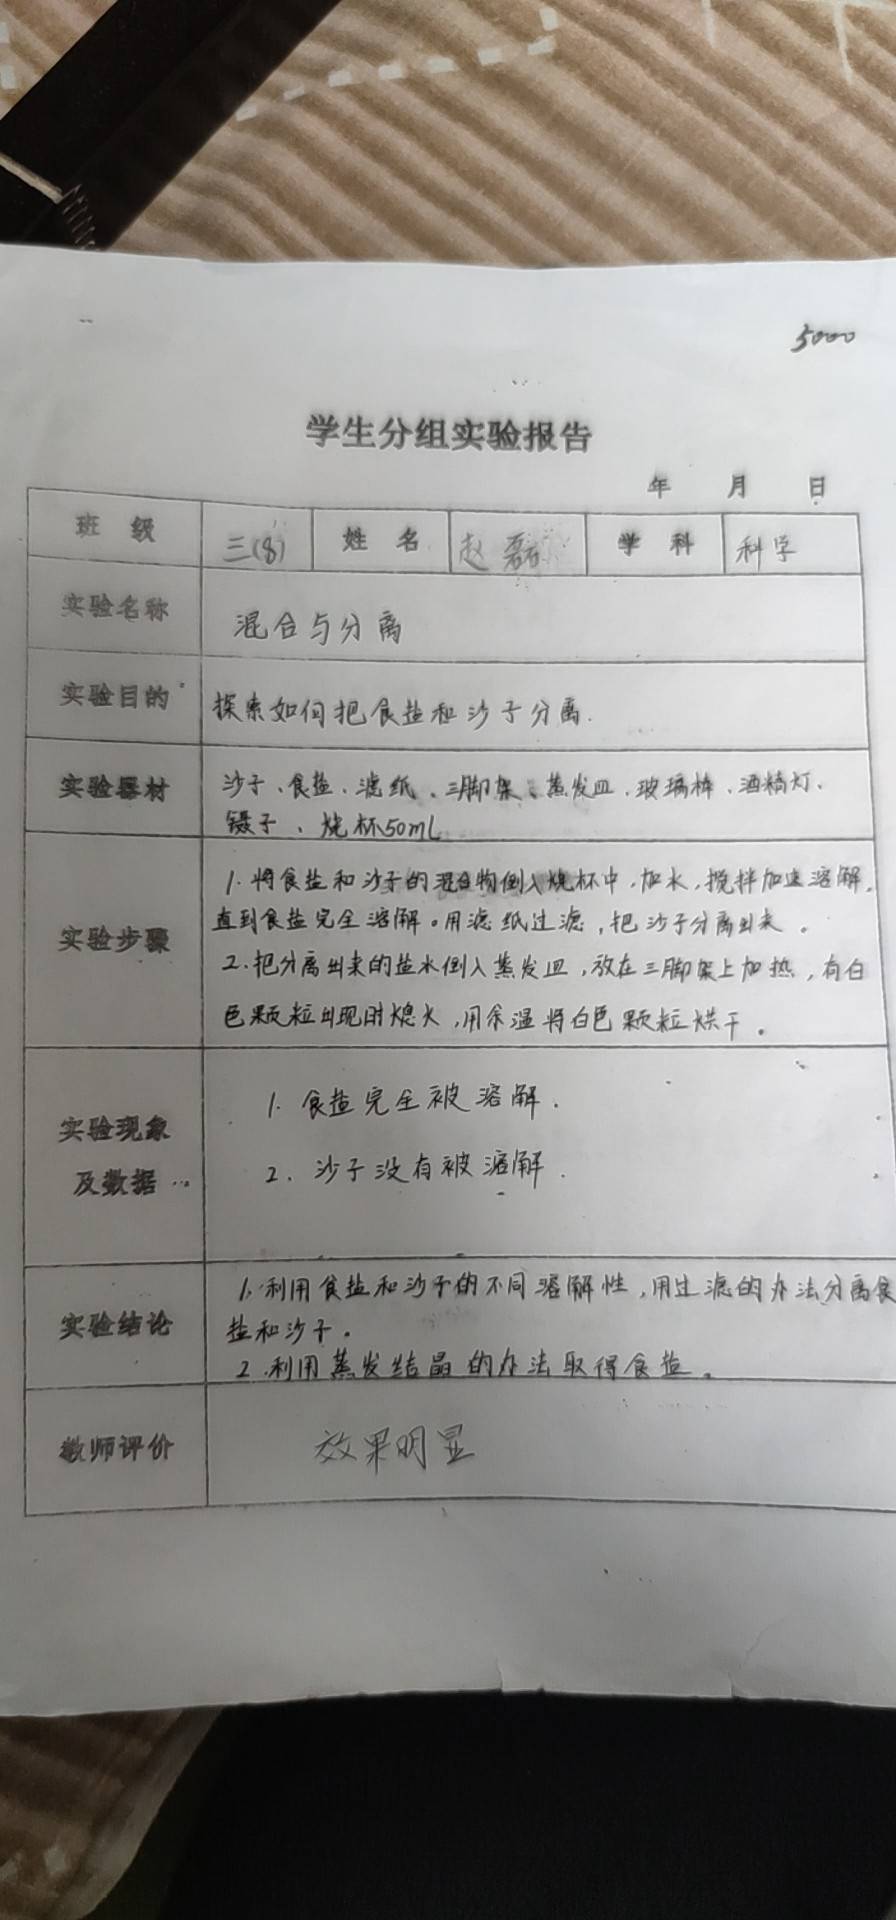 5000
学生分组实验报告
年 月 日
班级 三(8) 姓名 赵磊 学科 科学
实验名称 混合与分离
实验目的 探索如何把食盐和沙子分离.
实验器材 沙子、食盐、滤纸、三脚架、蒸发皿、玻璃棒、酒精灯、
镊子、烧杯50mL
实验步骤 1.将食盐和沙子的混合物倒入烧杯中,加水,搅拌加速溶解,
直到食盐完全溶解。用滤纸过滤,把沙子分离出来。
2.把分离出来的盐水倒入蒸发皿,放在三脚架上加热,有白
色颗粒出现时熄火,用余温将白色颗粒烘干。
实验现象
及数据
1.食盐完全被溶解.
2.沙子没有被溶解.
实验结论 1.利用食盐和沙子的不同溶解性,用过滤的办法分离食
盐和沙子。
2.利用蒸发结晶的办法取得食盐。
教师评价 效果明显